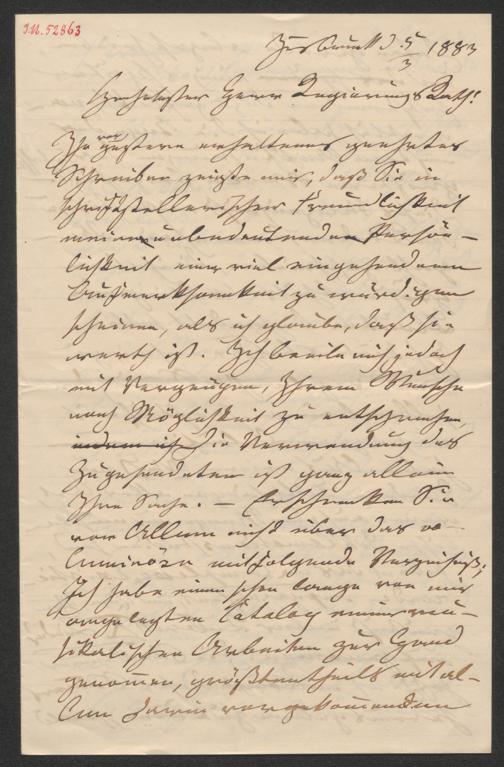 I.N. 52863
Innsbruck d. 5/3 1883
Hochgeehrter Herr Regierungs Rath!
Ihr vorgestern erhaltenes geehrtes
Schreiben zeigte mir, daß Sie in
schriftstellerischer Freundlichkeit
meine unbedeutende Persön-
lichkeit einer viel eingehenderen
Aufmerksamkeit zu würdigen
scheinen, als ich glaube, daß sie
werth ist. Ich beeile mich jedoch
mit Vergnügen, Ihrem Wunsche
nach Möglichkeit zu entsprechen,
indem ich Die Verwendung des
Zugesendeten ist ganz allein
Ihre Sache. — Erschrecken Sie
vor Allem nicht über das vo-
luminöse mitfolgende Verzeichniß;
Ich habe einen schon lange von mir
angelegten Catalog meiner mu-
sikalischen Arbeiten zur Hand
genommen, größtentheils mit al-
len darin vorgekommenen